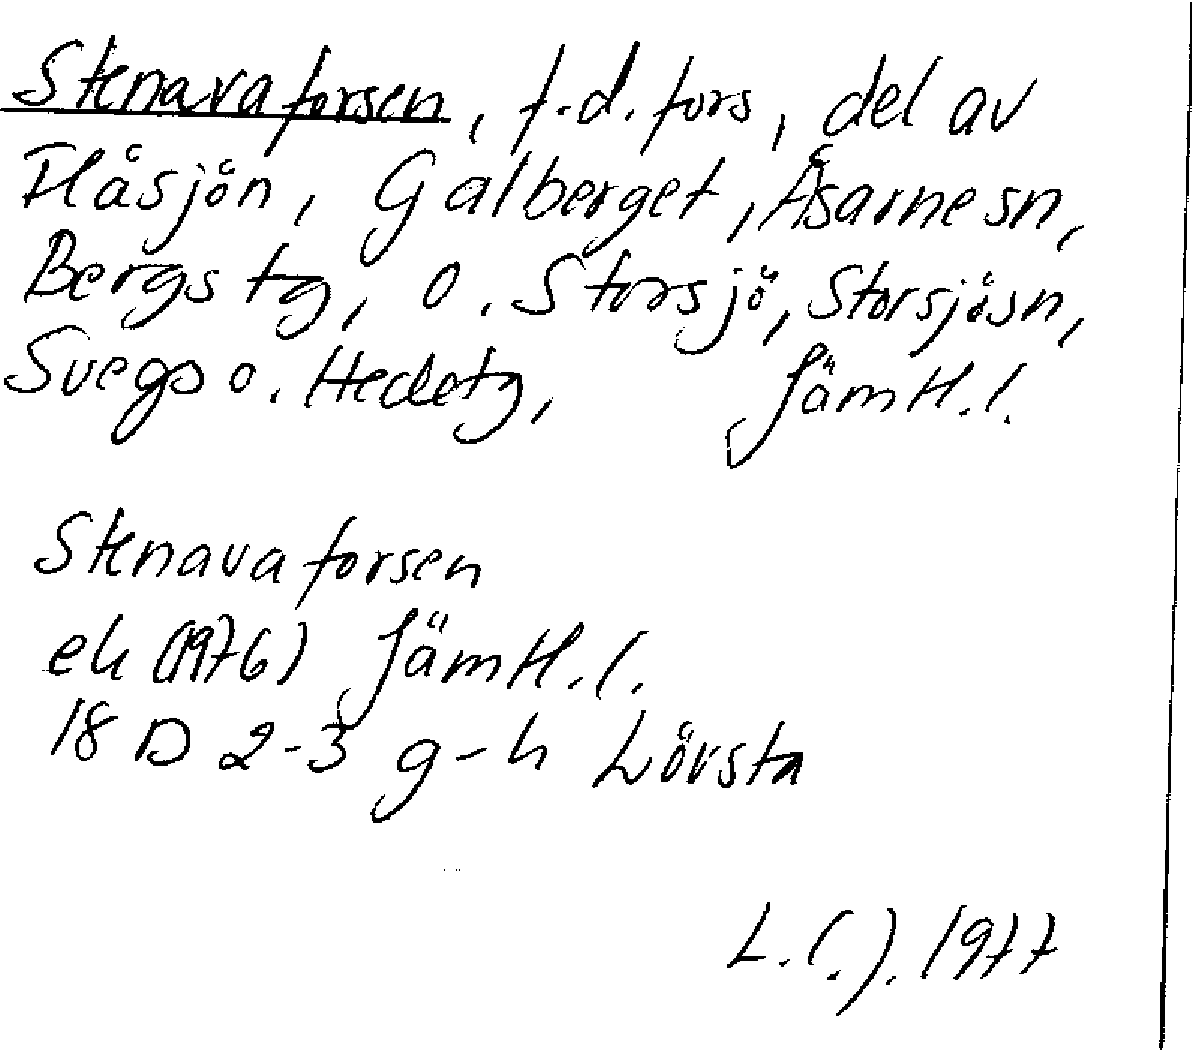 Stenavaforsen, f.d. fors, del av
Flåsjön, Galberget, Åsarne sn,
Bergs tg, o. Storsjö, Storsjö sn,
Svegs o. Hede tg, Jämtl. l.
Stenavaforsen
ek (1976) Jämtl. l.
18 D 2-3 g-h Lövsta
1977